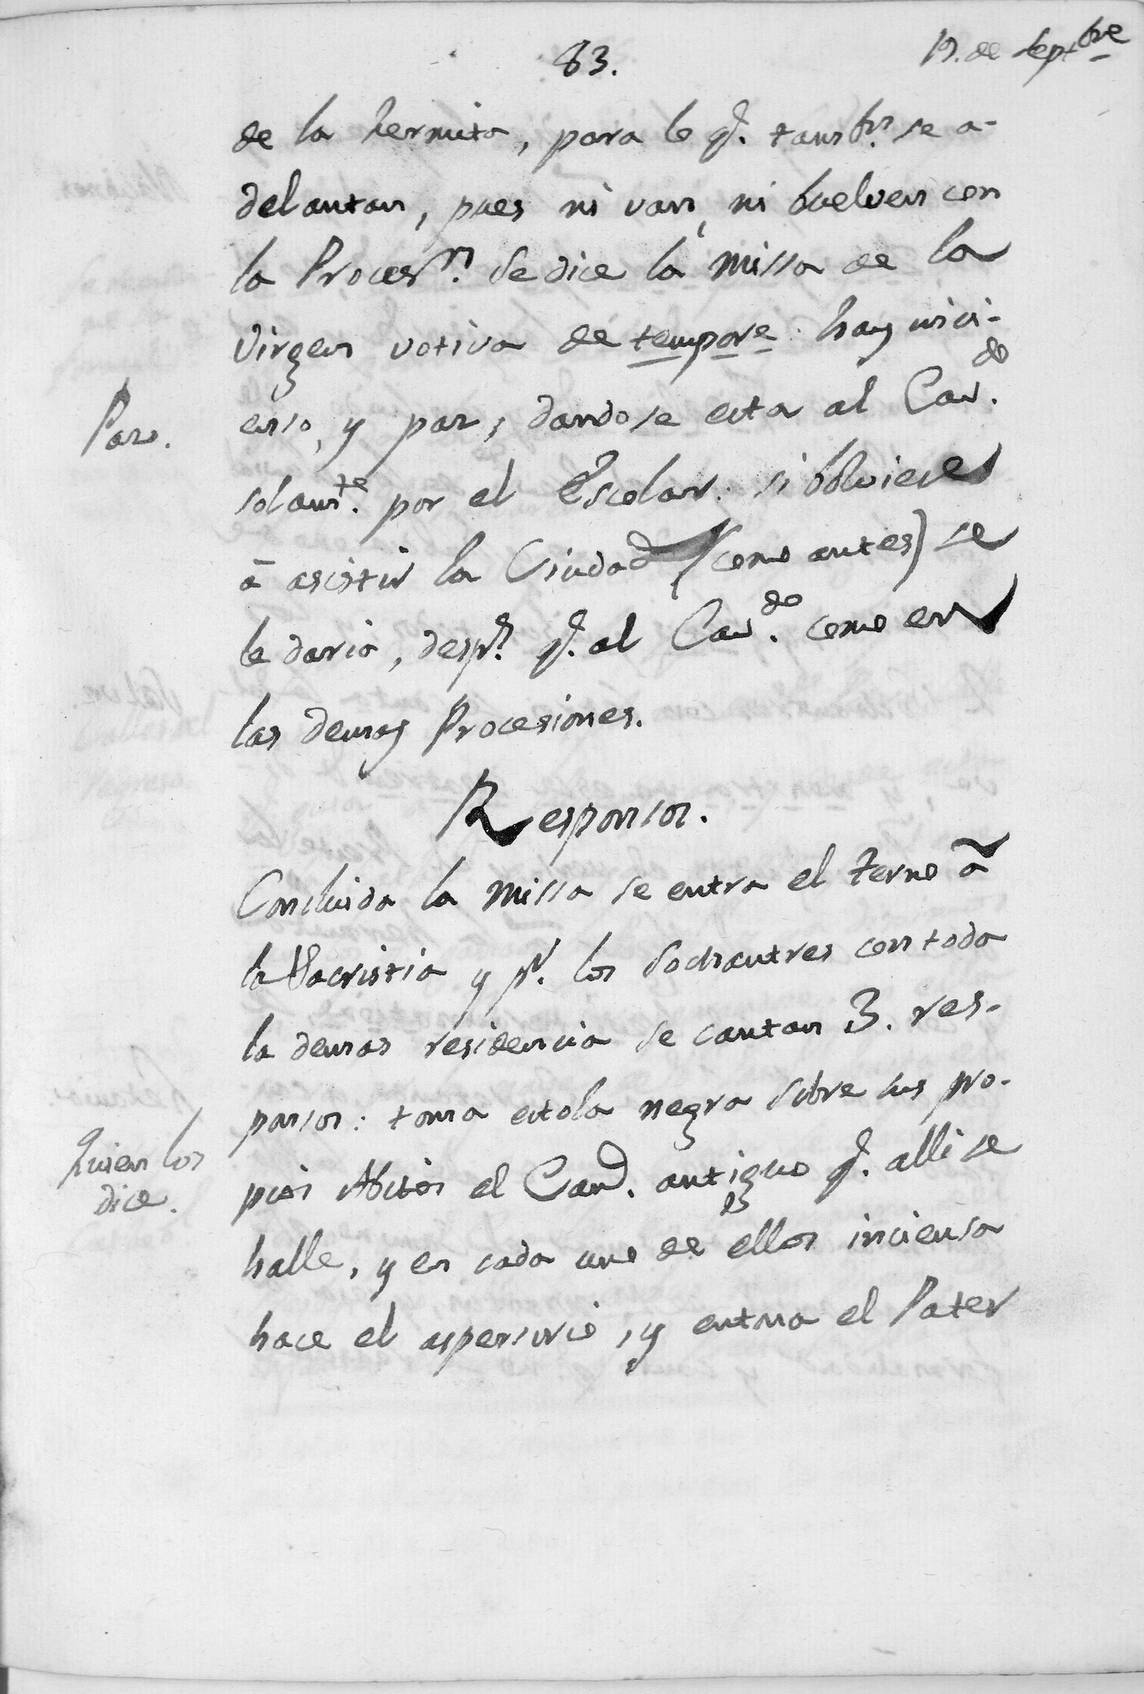 83.
19. de septbre
de la hermita, para lo q. tambn. se a-
delantan, pues ni van, ni buelven con
la Procesn. Se dice la Missa de la
Virgen votiva de tempore. hay inci-
enso, y paz, dandose esta al Cavdo.
Paz.
solamte. por el Escolar. si bolviese
â asistir la Ciudad (como antes) se
le daria, desps. q. al Cavdo. como en
las demas Procesiones.
Responsos.
Concluida la Missa se entra el terno â
la Sacristia y pr. los Sochantres con toda
la demas residencia se cantan 3. res-
ponsos: toma estola negra sobre sus pro-
Quien los
dice.
pios Abitos el Cand. antiguo q. alli se
halle, y en cada uno de ellos inciensa
hace el aspersorio, y entona el Pater